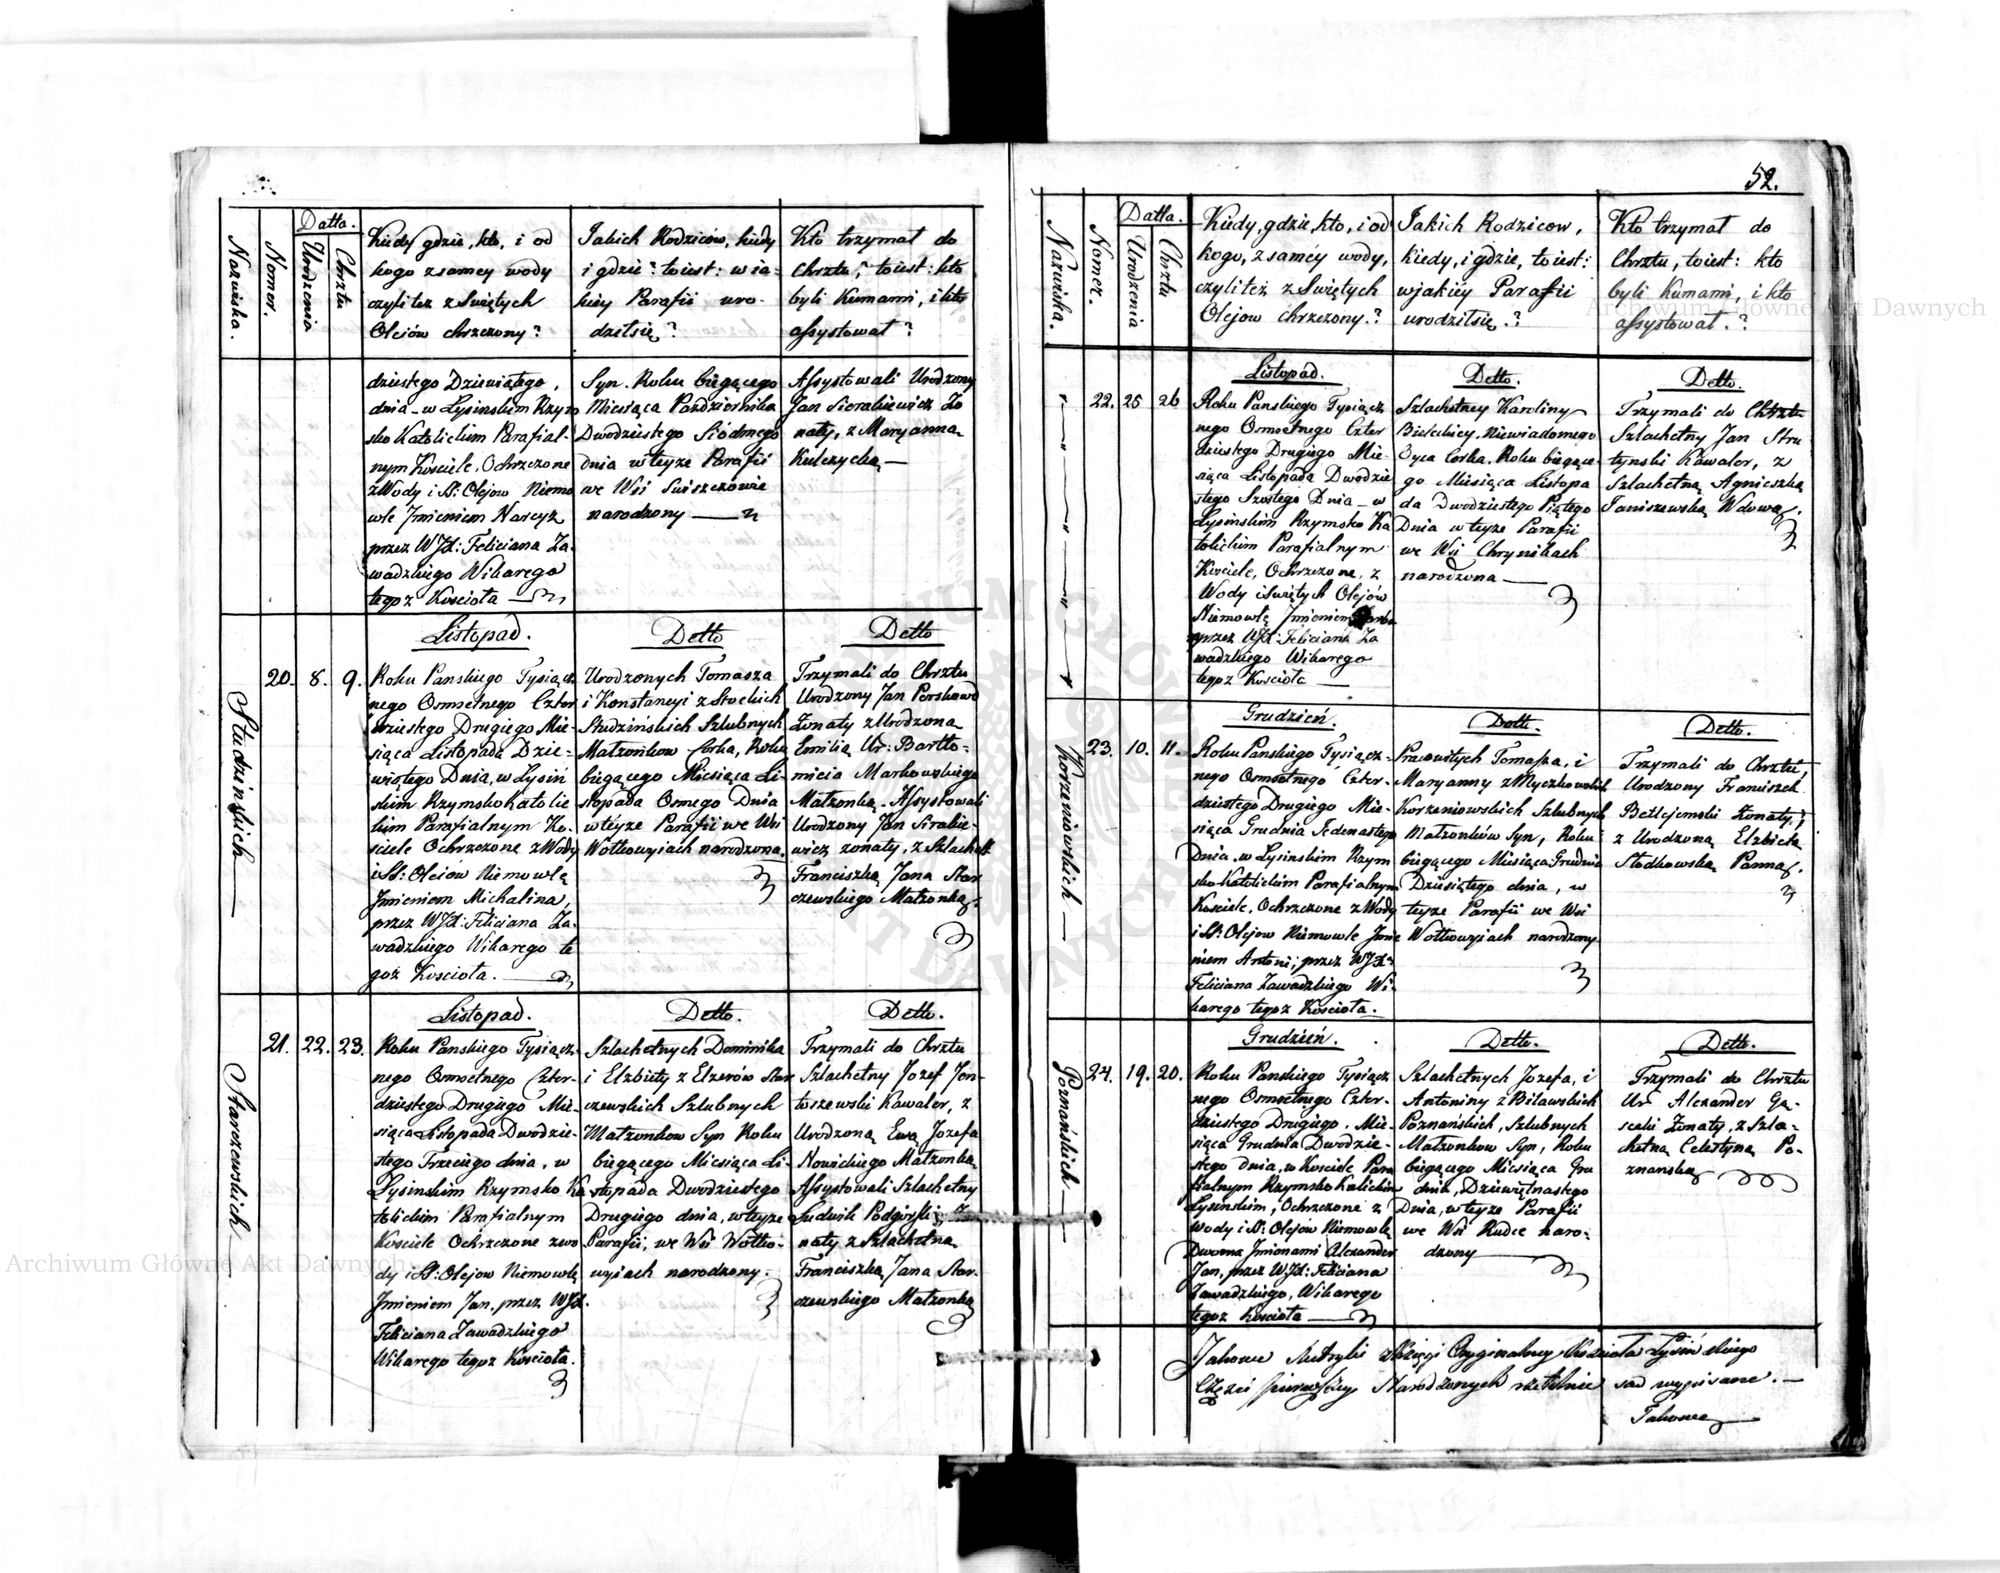 Nazwiska.
Nomer.
Datta.
Urodzenia
Chrztu
Kiedy gdzie, kto, i od
kogo z samey wody
czyli tez z Swiętych
Olejów chrzczony?
Jakich Rodziców, kiedy
i gdzie? toiest: w ia-
kiey Parafii uro-
dziełsię?
Kto trzymał do
Chrztu, toiest: kto
byli Kumami, i kto
assystował?
dziestego Dziewiątego,
dnia w Łysinskim Rzym
sko Katolickim Parafial-
nym Kosciele, Ochrzczone
z Wody i SS: Olejow Niemo
wle Jmieniem Narcyz
przez WJX: Feliciana Za-
wadzkiego Wikarego
tegoz Koscioła
Syn. Roku biegącego
Miesiąca Pazdziernika
Dwodziestego Siódmego
Dnia w teyze Parafii
we Wsi Swiszczowie
narodzony
Assystowali Urodzony
Jan Sierakiewicz Żo
naty, z Maryanna
Kulczycką
Studzińskich
20. 8. 9.
Listopad.
Roku Panskiego Tysiącz
nego Osmsetnego Czter
dziestego Drugiego Mie-
siąca Listopada Dzie-
wiątego Dnia, w Łysiń
skim Rzymsko Katolic
kim Parafialnym Ko-
sciele Ochrzczone z Wody
i SS: Olejów Niemowlę
Jmieniem Michalina,
przez WJX: Feliciana Za-
wadzkiego Wikarego te
goz Kosciola.
Detto
Urodzonych Tomasza
i Konstancyi z Stockich
Studzińskich Szlubnych
Matzonkow Corka, Roku
biegącego Miesiąca Li-
stopada Osmego Dnia
w teyze Parafii we Wsi
Wołkowyiach narodzona.
Detto
Trzymali do Chrztu
Urodzony Jan
Żonaty z Urodzona
Emilią Ur: Bartło-
mieia Markowskiego
Matzonką. Assystowali
Urodzony Jan Sirakie-
wicz zonaty, z Szlachett
Franciszką Jana Star
czewskiego Matzonką.
Starczewskich
21. 22. 23.
Listopad.
Roku Panskiego Tysiącz-
nego Osmsetnego Czter-
dziestego Drugiego Mie-
siąca Listopada Dwodzie-
stego Trzeciego dnia, w
Łysinskim Rzymsko Ka
tolickim Parafialnym
Kosciele Ochrzczone z wo
dy i SS: Olejow Niemowlę
Jmieniem Jan, przez WJX.
Feliciana Zawadzkiego
Wikarego tegoz Kosciola.
Detto.
Szlachetnych Dominika
i Elzbiety z Elzerów Star
czewskich Szlubnych
Matzonkow Syn Roku
biegącego Miesiąca Li-
stopada Dwodziestego
Drugiego dnia, w teyze
Parafii, we Wsi Wołko-
wyiach narodzony.
Detto.
Trzymali do Chrztu
Szlachetny Jozef Jen-
toszewski Kawaler, z
Urodzoną Ewą Jozefa
Nowickiego Matzonką
Assystowali Szlachetny
Ludwik Podgórski, Żo
naty z Szlachetna
Franciszką Jana Star-
czewskiego Matzonką
52.
Nazwiska.
Nomer.
Datta.
Urodzenia
Chrztu
Kiedy, gdzie, kto, i od
kogo, z saméy wody,
czyli tez z Swiętych
Olejow chrzczony.?
Jakich Rodzicow,
kiedy, i gdzie, toiest:
w jakiéy Parafii
urodziłsię.?
Kto trzymał do
Chrztu, toiest: kto
byli Kumami, i kto
assystował.?
22. 25 26
Listopad.
Roku Panskiego Tysiącz
nego Osmsetnego Czter
dziestego Drugiego Mie-
siąca Listopada Dwodzie
stego Szostego Dnia w
Łysinskim Rzymsko Ka
tolickim Parafialnym
Kosciele, Ochrzczone, z
Wody i Swiętych Olejów
Niemowlę Jmieniem
przez WJX: Feliciana Za
wadzkiego Wikarego
tegoz Kosciola
Detto.
Szlachetney Karoliny
Bieleckiey, Niewiadomego
Oyca Corka. Roku biegące-
go Miesiąca Listopa
da Dwodziestego Piątego
Dnia w teyze Parafii
we Wsi Chrynikach
narodzona
Detto.
Trzymali do Chrztu
Szlachetny Jan Stru
tynski Kawaler, z
Szlachetną Agnieszką
Janiszewską Wdową.
Korzeniowskich
23. 10. 11.
Grudzień.
Roku Panskiego Tysiącz-
nego Osmsetnego Czter-
dziestego Drugiego Mie-
siąca Grudnia Jedenastego
Dnia w Łysinskim Rzym
sko Katolickim Parafialnym
Kosciele, Ochrzczone z Wody
i SS: Olejow Niemowle Jmie
niem Antoni, przez WJX:
Feliciana Zawadzkiego Wi-
karego tegoz Kosciola.
Detto.
Pracowitych Tomasza, i
Maryanny z Myczkowskich
Korzeniowskich Szlubnych
Matzonków Syn, Roku
biegącego Miesiąca Grudnia
Dziesiątego dnia, w
teyze Parafii we Wsi
Wołkowyiach narodzony
Detto.
Trzymali do Chrztu,
Urodzony Franciszek
Betlejemski Żonaty,
z Urodzoną Elzbietą
Słodkowską Panną.
Poznańskich
24. 19. 20.
Grudzień.
Roku Panskiego Tysiącz
nego Osmsetnego Czter-
dziestego Drugiego, Mie-
siąca Grudnia Dwodzie-
stego dnia, w Kosciele Para
fialnym Rzymsko Kalickim
Łysinskim, Ochrzczone z
wody i SS: Olejów Niemowlę
Dwoma Jmionami Alexander
Jan, przez WJX: Feliciana
Zawadzkiego, Wikarego
tegoz Kosciola
Detto.
Szlachetnych Jozefa, i
Antoniny z Bilawskich
Poznańskich, Szlubnych
Matzonkow Syn, Roku
biegącego Miesiąca Gru
dnia, Dziewiętnastego
Dnia, w teyze Parafii
we Wsi Rudce naro-
dzony
Detto.
Trzymali do Chrztu
Ur: Alexander Ga-
secki Żonaty, z Szla-
chetną Celestyną Po-
znanską
Jakowe Metryki z Księgi Oryginalney Kosciola Łysińskiego
Częsci pierwszéy Narodzonych rzetelnie sąd wypisane.
Jakowe
Archiwum Główne Akt Dawnych
Archiwum Główne Akt Dawnych
ARCHIWUM GŁÓWNE AKT DAWNYCH